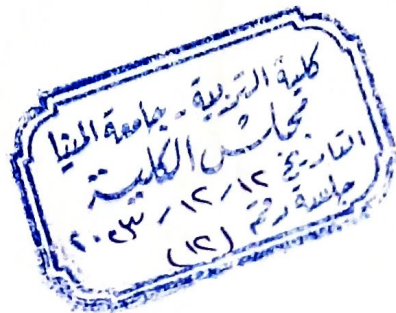 كلية التربية - جامعة المنيا
مجلس الكلية
التاريخ ١٢ / ١٢ / ٢٠٢٣
جلسة رقم (١٢)